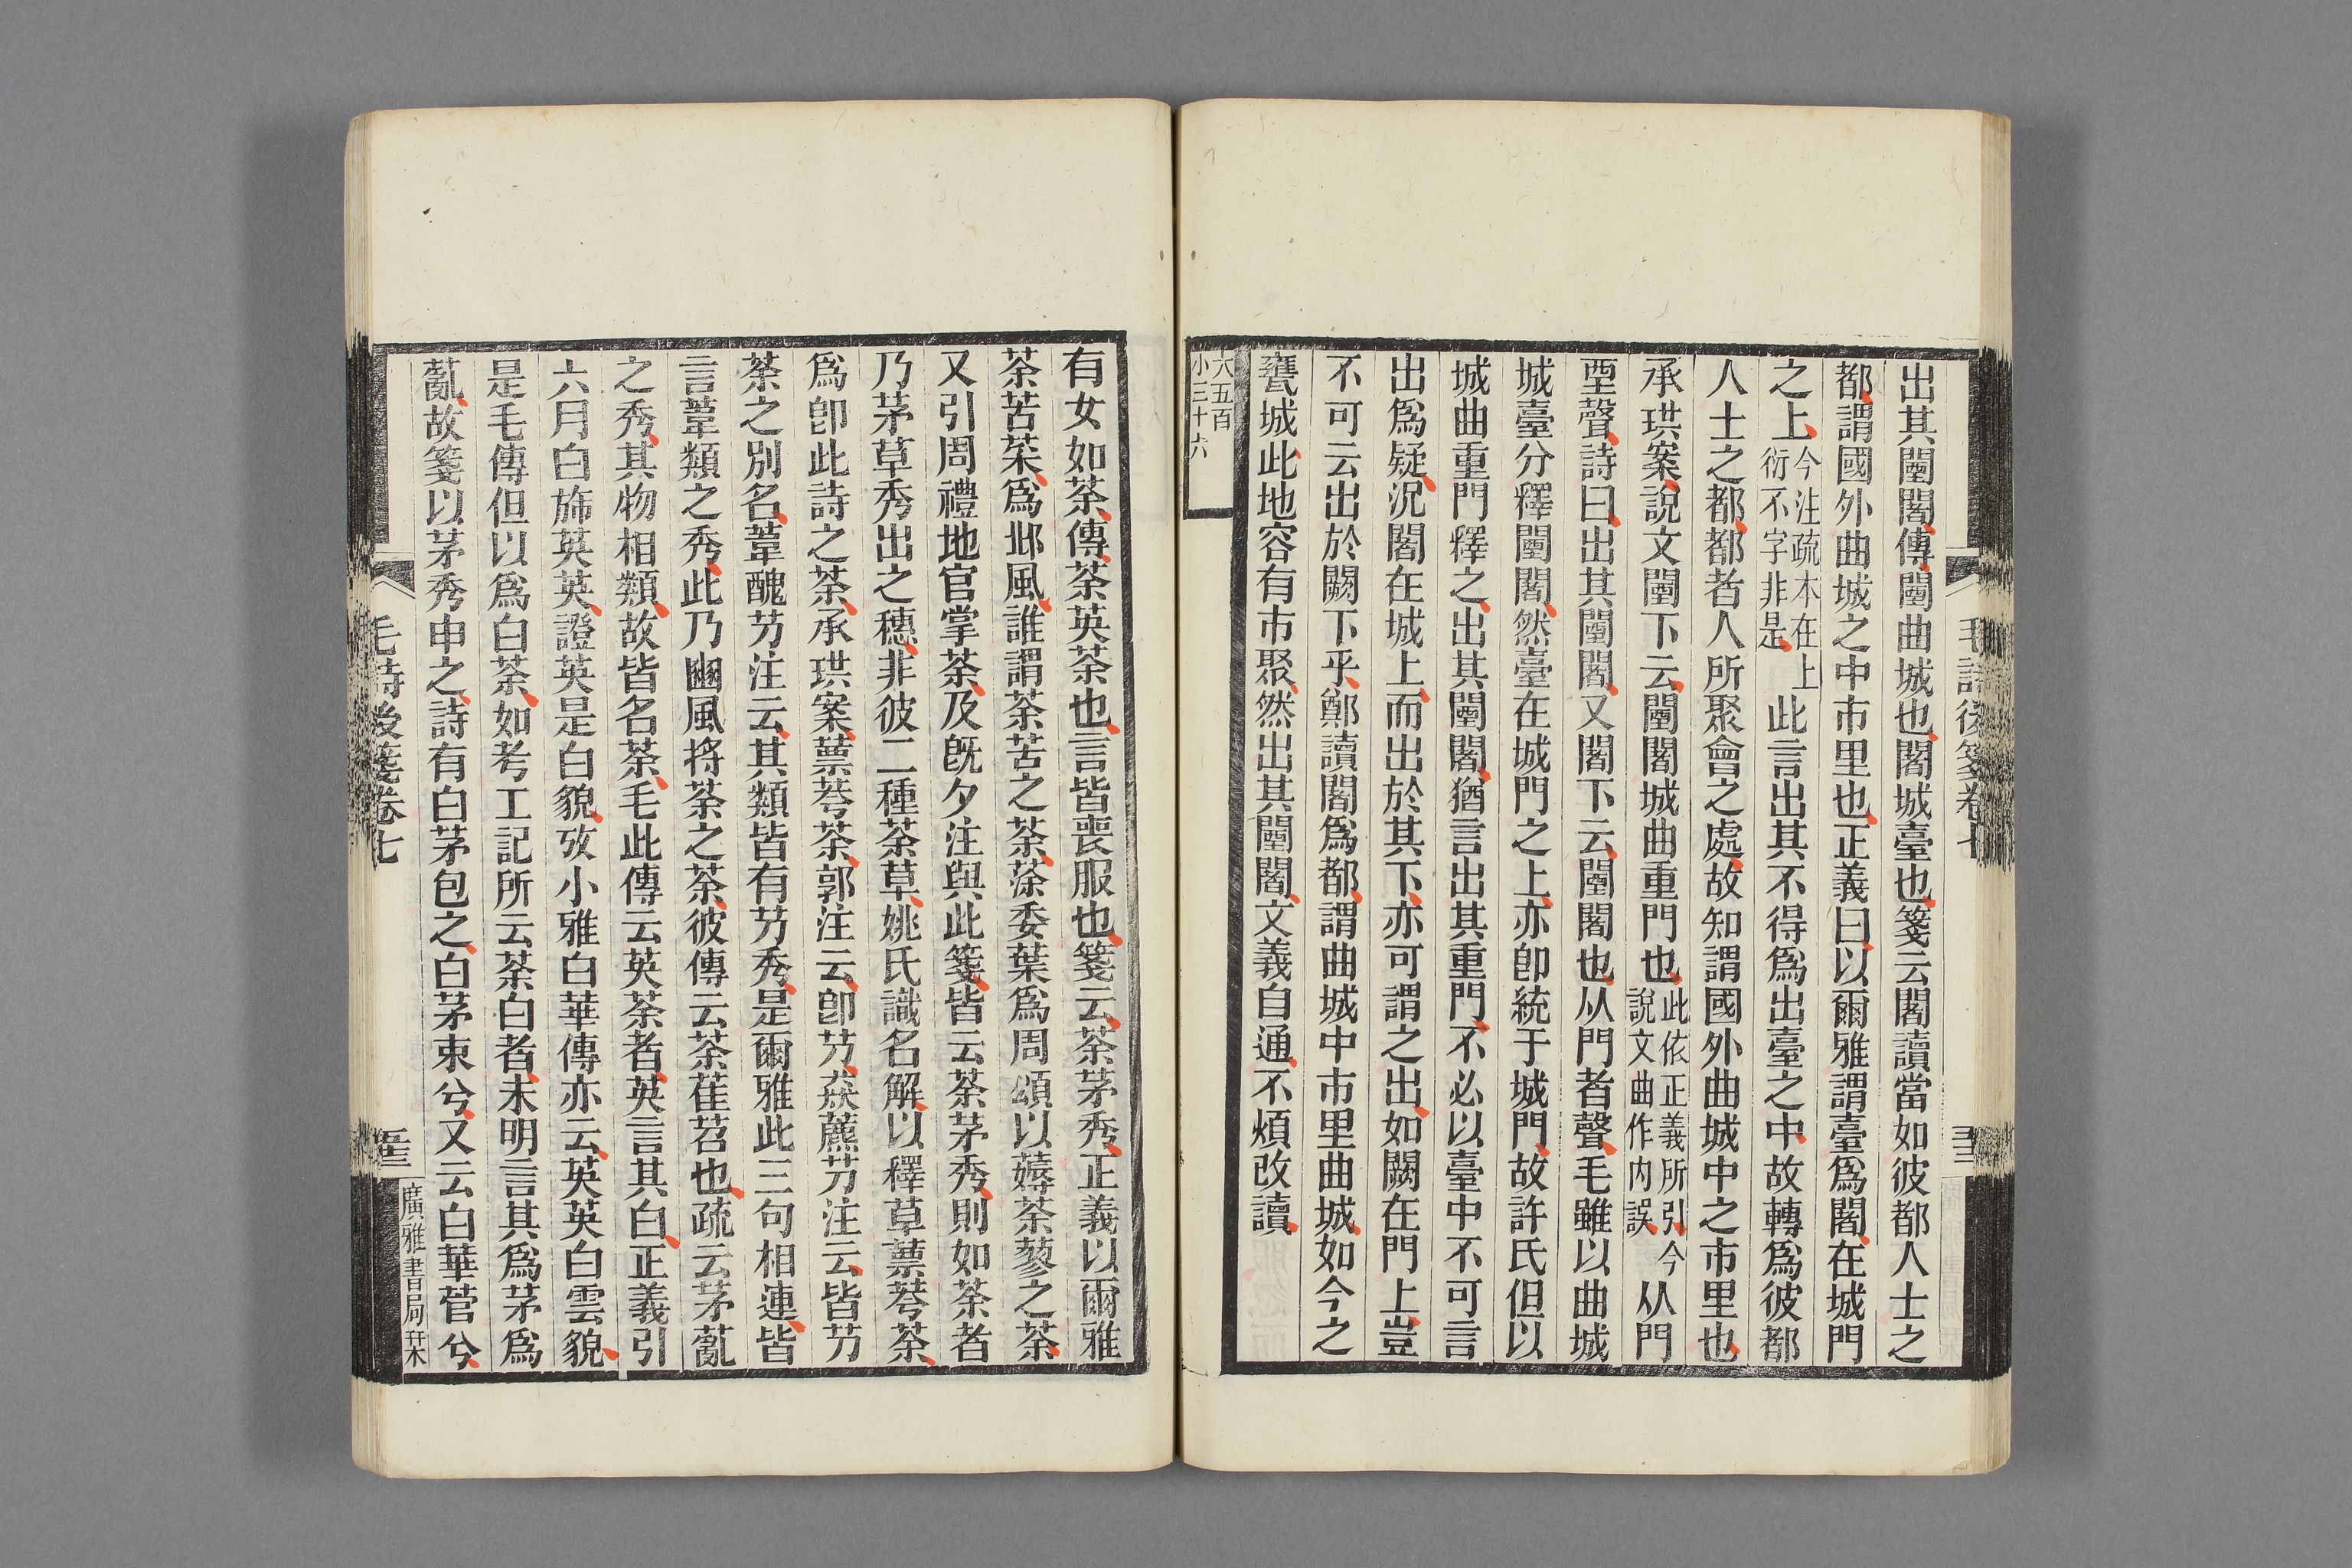 出其闉闍傳闉曲城也闍城臺也箋云闍讀當如彼都人士之
都謂國外曲城之中市里也正義曰以爾雅謂臺爲闍在城門
之上今注疏本在上衍不字非是此言出其不得爲出臺之中故轉爲彼都
人士之都都者人所聚會之處故知謂國外曲城中之市里也
承珙案說文闉下云闉闍城曲重門也此依正義所引今說文曲作内誤从門
垔聲詩曰出其闉闍又闍下云闉闍也从門者聲毛雖以曲城
城臺分釋闉闍然臺在城門之上亦卽統于城門故許氏但以
城曲重門釋之出其闉闍猶言出其重門不必以臺中不可言
出爲疑況闍在城上而出於其下亦可謂之出如闕在門上豈
不可云出於闕下乎鄭讀闍爲都謂曲城中市里曲城如今之
甕城此地容有市聚然出其闉闍文義自通不煩改讀
大五百
小三十六
毛詩後箋卷七
有女如荼傳荼英荼也言皆喪服也箋云荼茅秀正義以爾雅
荼苦菜爲邶風誰謂荼苦之荼蒤委葉爲周頌以薅荼蓼之荼
又引周禮地官掌荼及旣夕注與此箋皆云荼茅秀則如荼者
乃茅草秀出之穗非彼二種荼草姚氏識名解以釋草蔈荂荼
爲卽此詩之荼承珙案蔈荂荼郭注云卽艿猋藨艿注云皆艿
荼之別名葦醜艿注云其類皆有艿秀是爾雅此三句相連皆
言葦類之秀此乃豳風捋荼之荼彼傳云荼萑苕也疏云茅薍
之秀其物相類故皆名荼毛此傳云英荼者英言其白正義引
六月白旆英英證英是白貌攷小雅白華傳亦云英英白雲貌
是毛傳但以爲白荼如考工記所云荼白者未明言其爲茅爲
薍故箋以茅秀申之詩有白茅包之白茅束兮又云白華菅兮
毛詩後箋卷七
廣雅書局栞